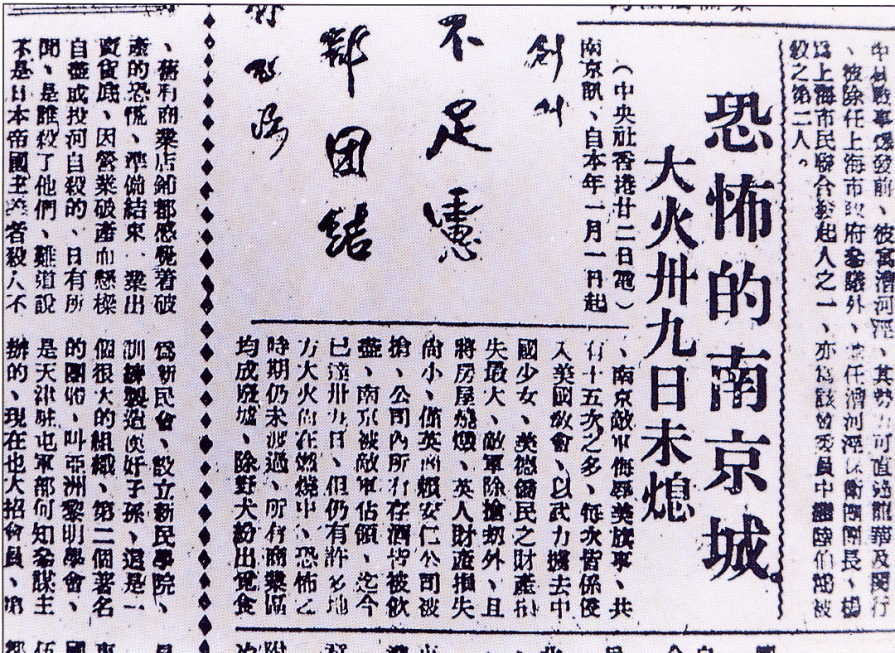 中日戰事爆發前、彼寓漕河涇、其勢力可直達龍華及閔行
、彼除任上海市政府參議外、並任漕河涇保衛團團長、楊
爲上海市民聯合發起人之一、亦爲該會委員中繼陸伯鴻被
殺之第二人。
恐怖的南京城
大火卅九日未熄
（中央社香港廿二日電）
南京訊、自本年一月一日起
、南京敵軍侮辱美旗事、共
有十五次之多、每次皆係侵
入美國敎會、以武力擄去中
國少女、英德僑民之財產損
失最大、敵軍除搶刼外、且
將房屋燒燬、英人財產損失
尙小、僅英商賴安仁公司被
搶、公司內所有存酒皆被飮
盡、南京被敵軍佔領、迄今
已達卅九日、但仍有許多地
方大火尙在燃燒中、恐怖之
時期仍未渡過、所有商業區
均成廢墟、除野犬紛出覓食
創刊
不足慮
部团結
、舊有商業店鋪都感覺着破
產的恐慌、準備結束、業出
賣貨底、因營業破產而懸樑
自盡或投河自殺的、日有所
聞、是誰殺了他們、難道說
不是日本帝國主義者殺人不
爲新民會、設立新民學院、
訓練製造良好子孫、這是一
個很大的組織、第二個著名
的團體、叫亞洲黎明學會、
是天津駐屯軍部何知參謀主
辦的、現在也大招會員、第